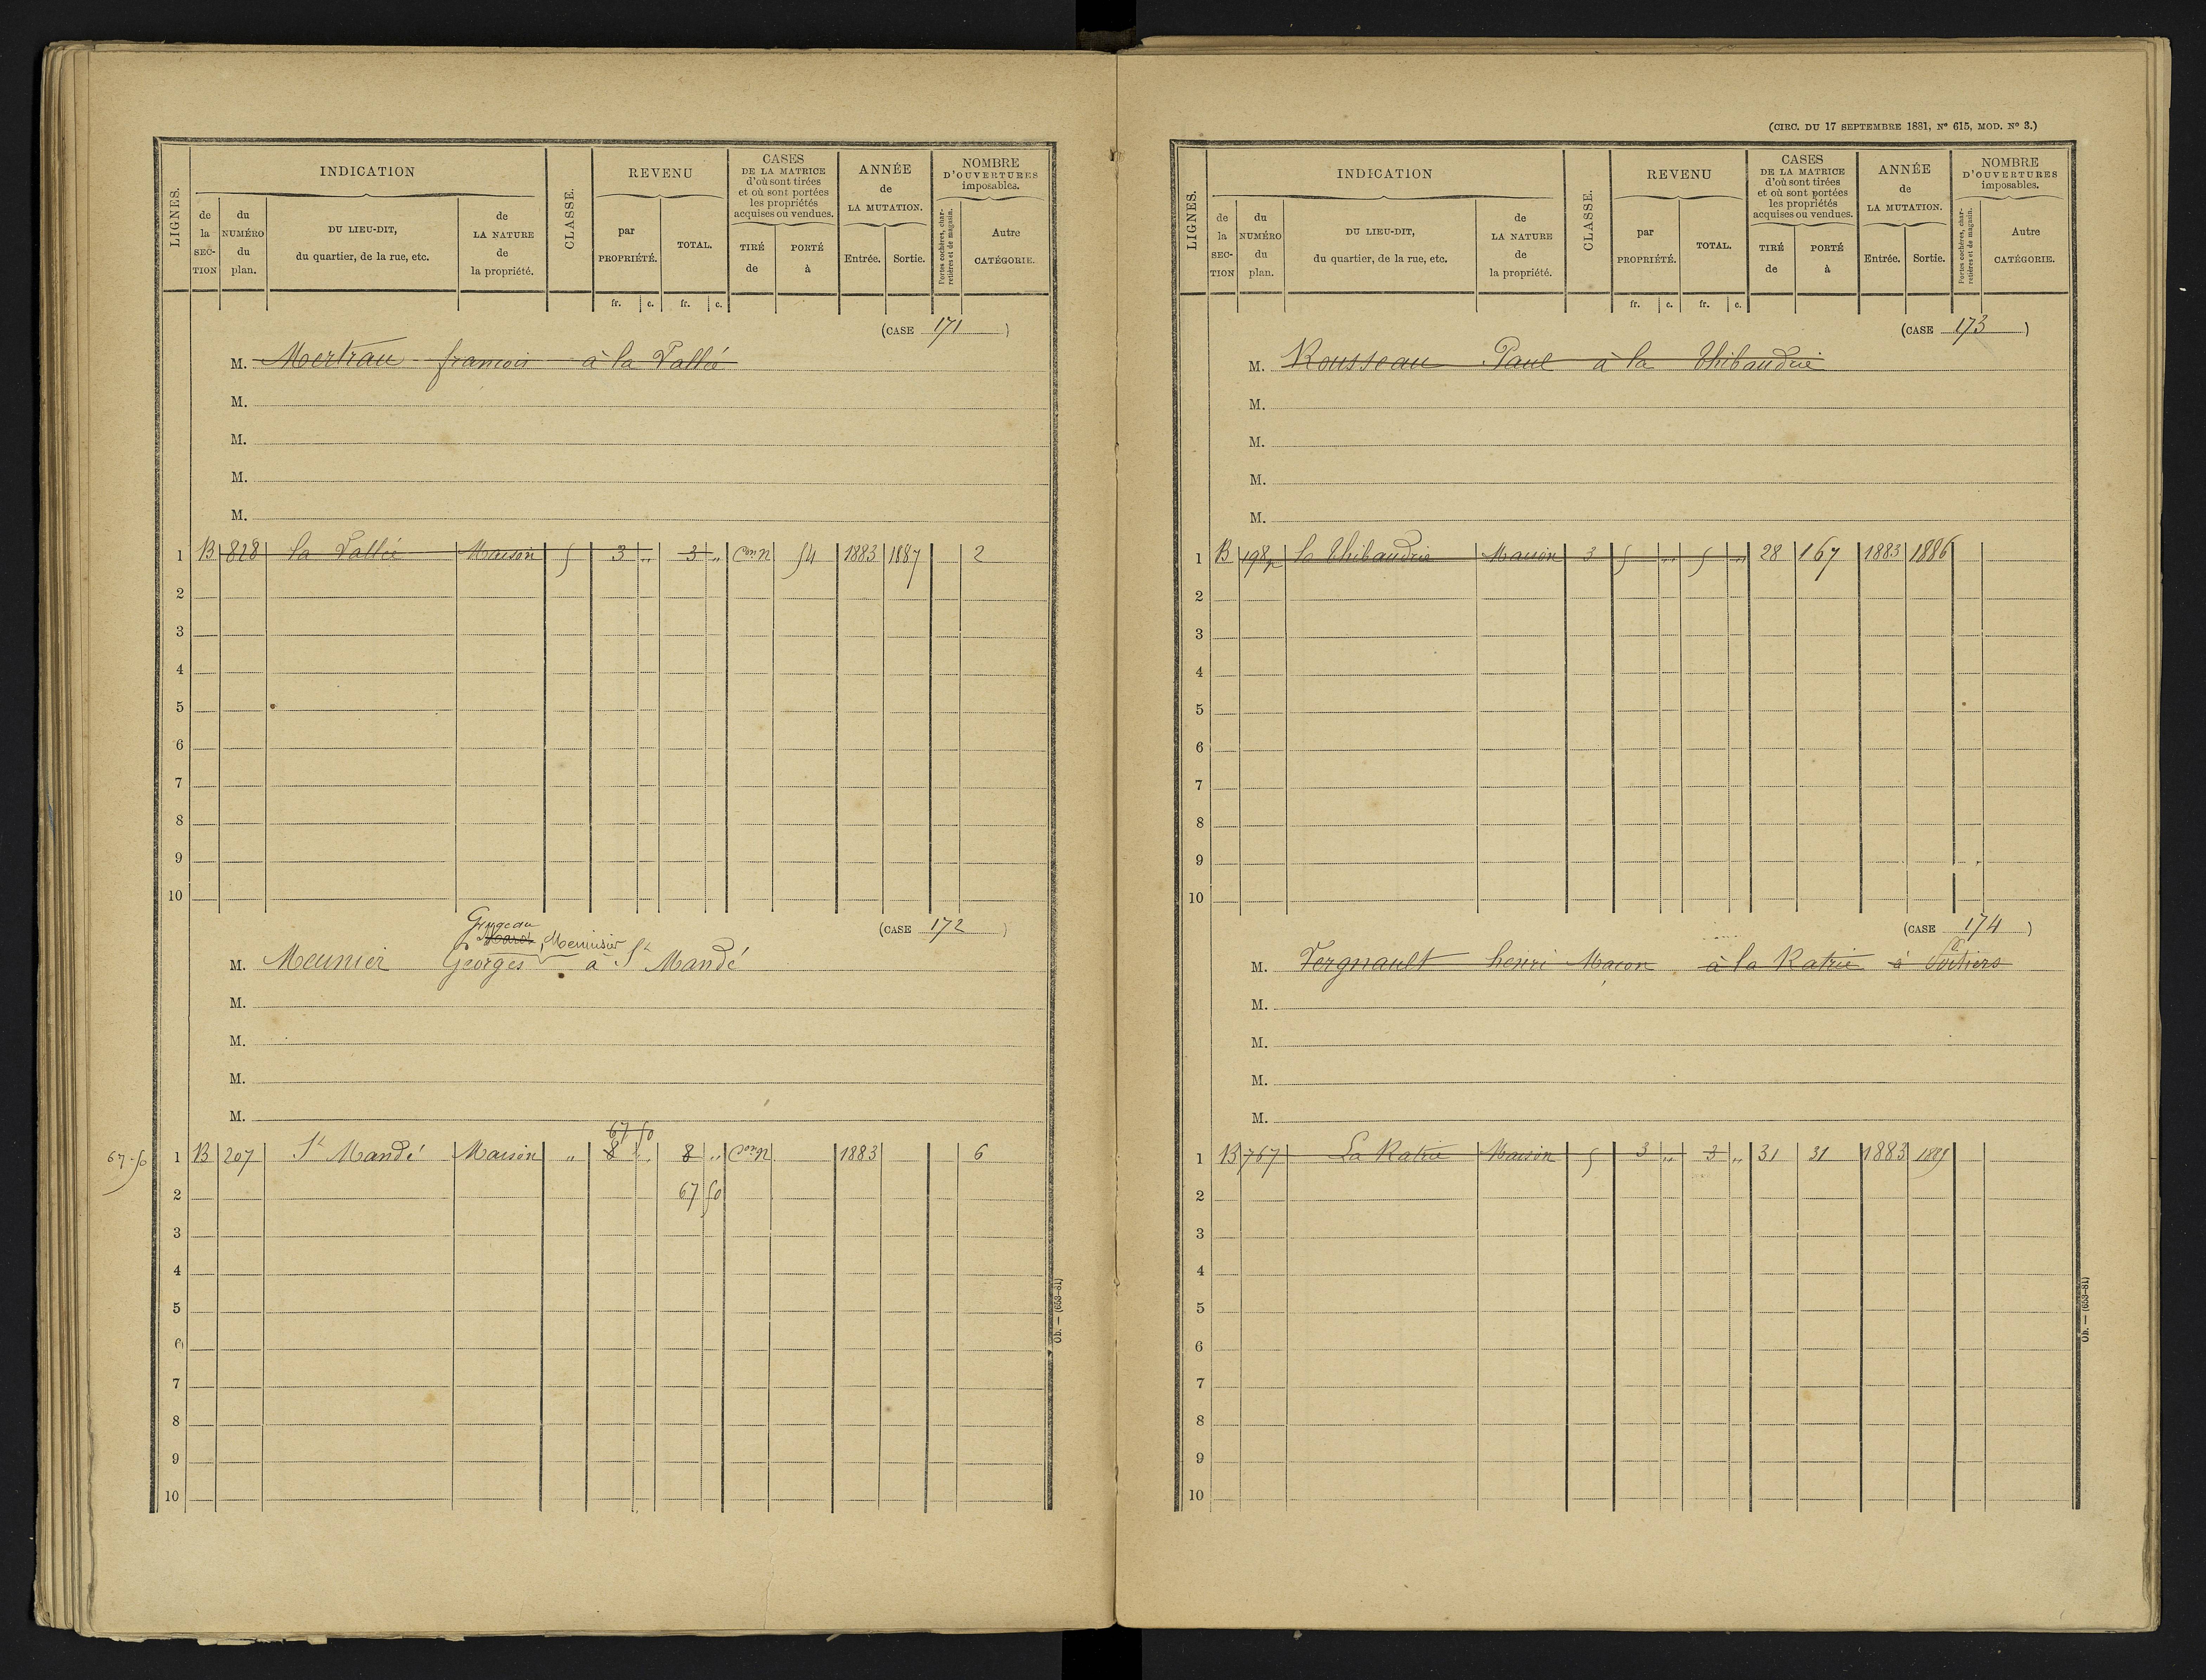 LIGNES.
INDICATION
de la SECTION
du NUMÉRO du plan.
DU LIEU-DIT, du quartier, de la rue, etc.
de LA NATURE de la propriété.
CLASSE.
REVENU
par PROPRIÉTÉ.
TOTAL.
CASES DE LA MATRICE d'où sont tirées et où sont portées les propriétés acquises ou vendues.
TIRÉ de
PORTÉ à
ANNÉE de LA MUTATION.
Entrée.
Sortie.
NOMBRE D'OUVERTURES imposables.
Portes cochères, charretières et de magasin.
Autre CATÉGORIE.
fr. c. fr. c.
(CASE 171)
M. Mertrau françois à la Vallée
M.
M.
M.
M.
1 B 828 la Vallée Maison 5 3 " 3 " Con N 54 1883 1887 2
2
3
4
5
6
7
8
9
10
(CASE 172)
Menuisier
M. Meunier Georges à St Mandé
M.
M.
M.
M.
67 50
67-50 1 B 207 St Mandé Maison " 8 " 8 " Con N 1883 6
2 67 50
3
4
5
6
7
8
9
10
Ob. — (653-81)
(CIRC. DU 17 SEPTEMBRE 1881, N° 615, MOD. N° 3.)
LIGNES.
INDICATION
de la SECTION
du NUMÉRO du plan.
DU LIEU-DIT, du quartier, de la rue, etc.
de LA NATURE de la propriété.
CLASSE.
REVENU
par PROPRIÉTÉ.
TOTAL.
CASES DE LA MATRICE d'où sont tirées et où sont portées les propriétés acquises ou vendues.
TIRÉ de
PORTÉ à
ANNÉE de LA MUTATION.
Entrée.
Sortie.
NOMBRE D'OUVERTURES imposables.
Portes cochères, charretières et de magasin.
Autre CATÉGORIE.
fr. c. fr. c.
(CASE 173)
M. Rousseau Paul à la Thibaudrie
M.
M.
M.
M.
1 B 198p la Thibaudrie Maison 3 5 " 5 " 28 167 1883 1886
2
3
4
5
6
7
8
9
10
(CASE 174)
M. Vergnault henri Macon à la Ratrie à Poitiers
M.
M.
M.
M.
1 B 767 La Ratrie Maison 5 3 " 3 " 31 31 1883 1889
2
3
4
5
6
7
8
9
10
Ob. — (653-81)